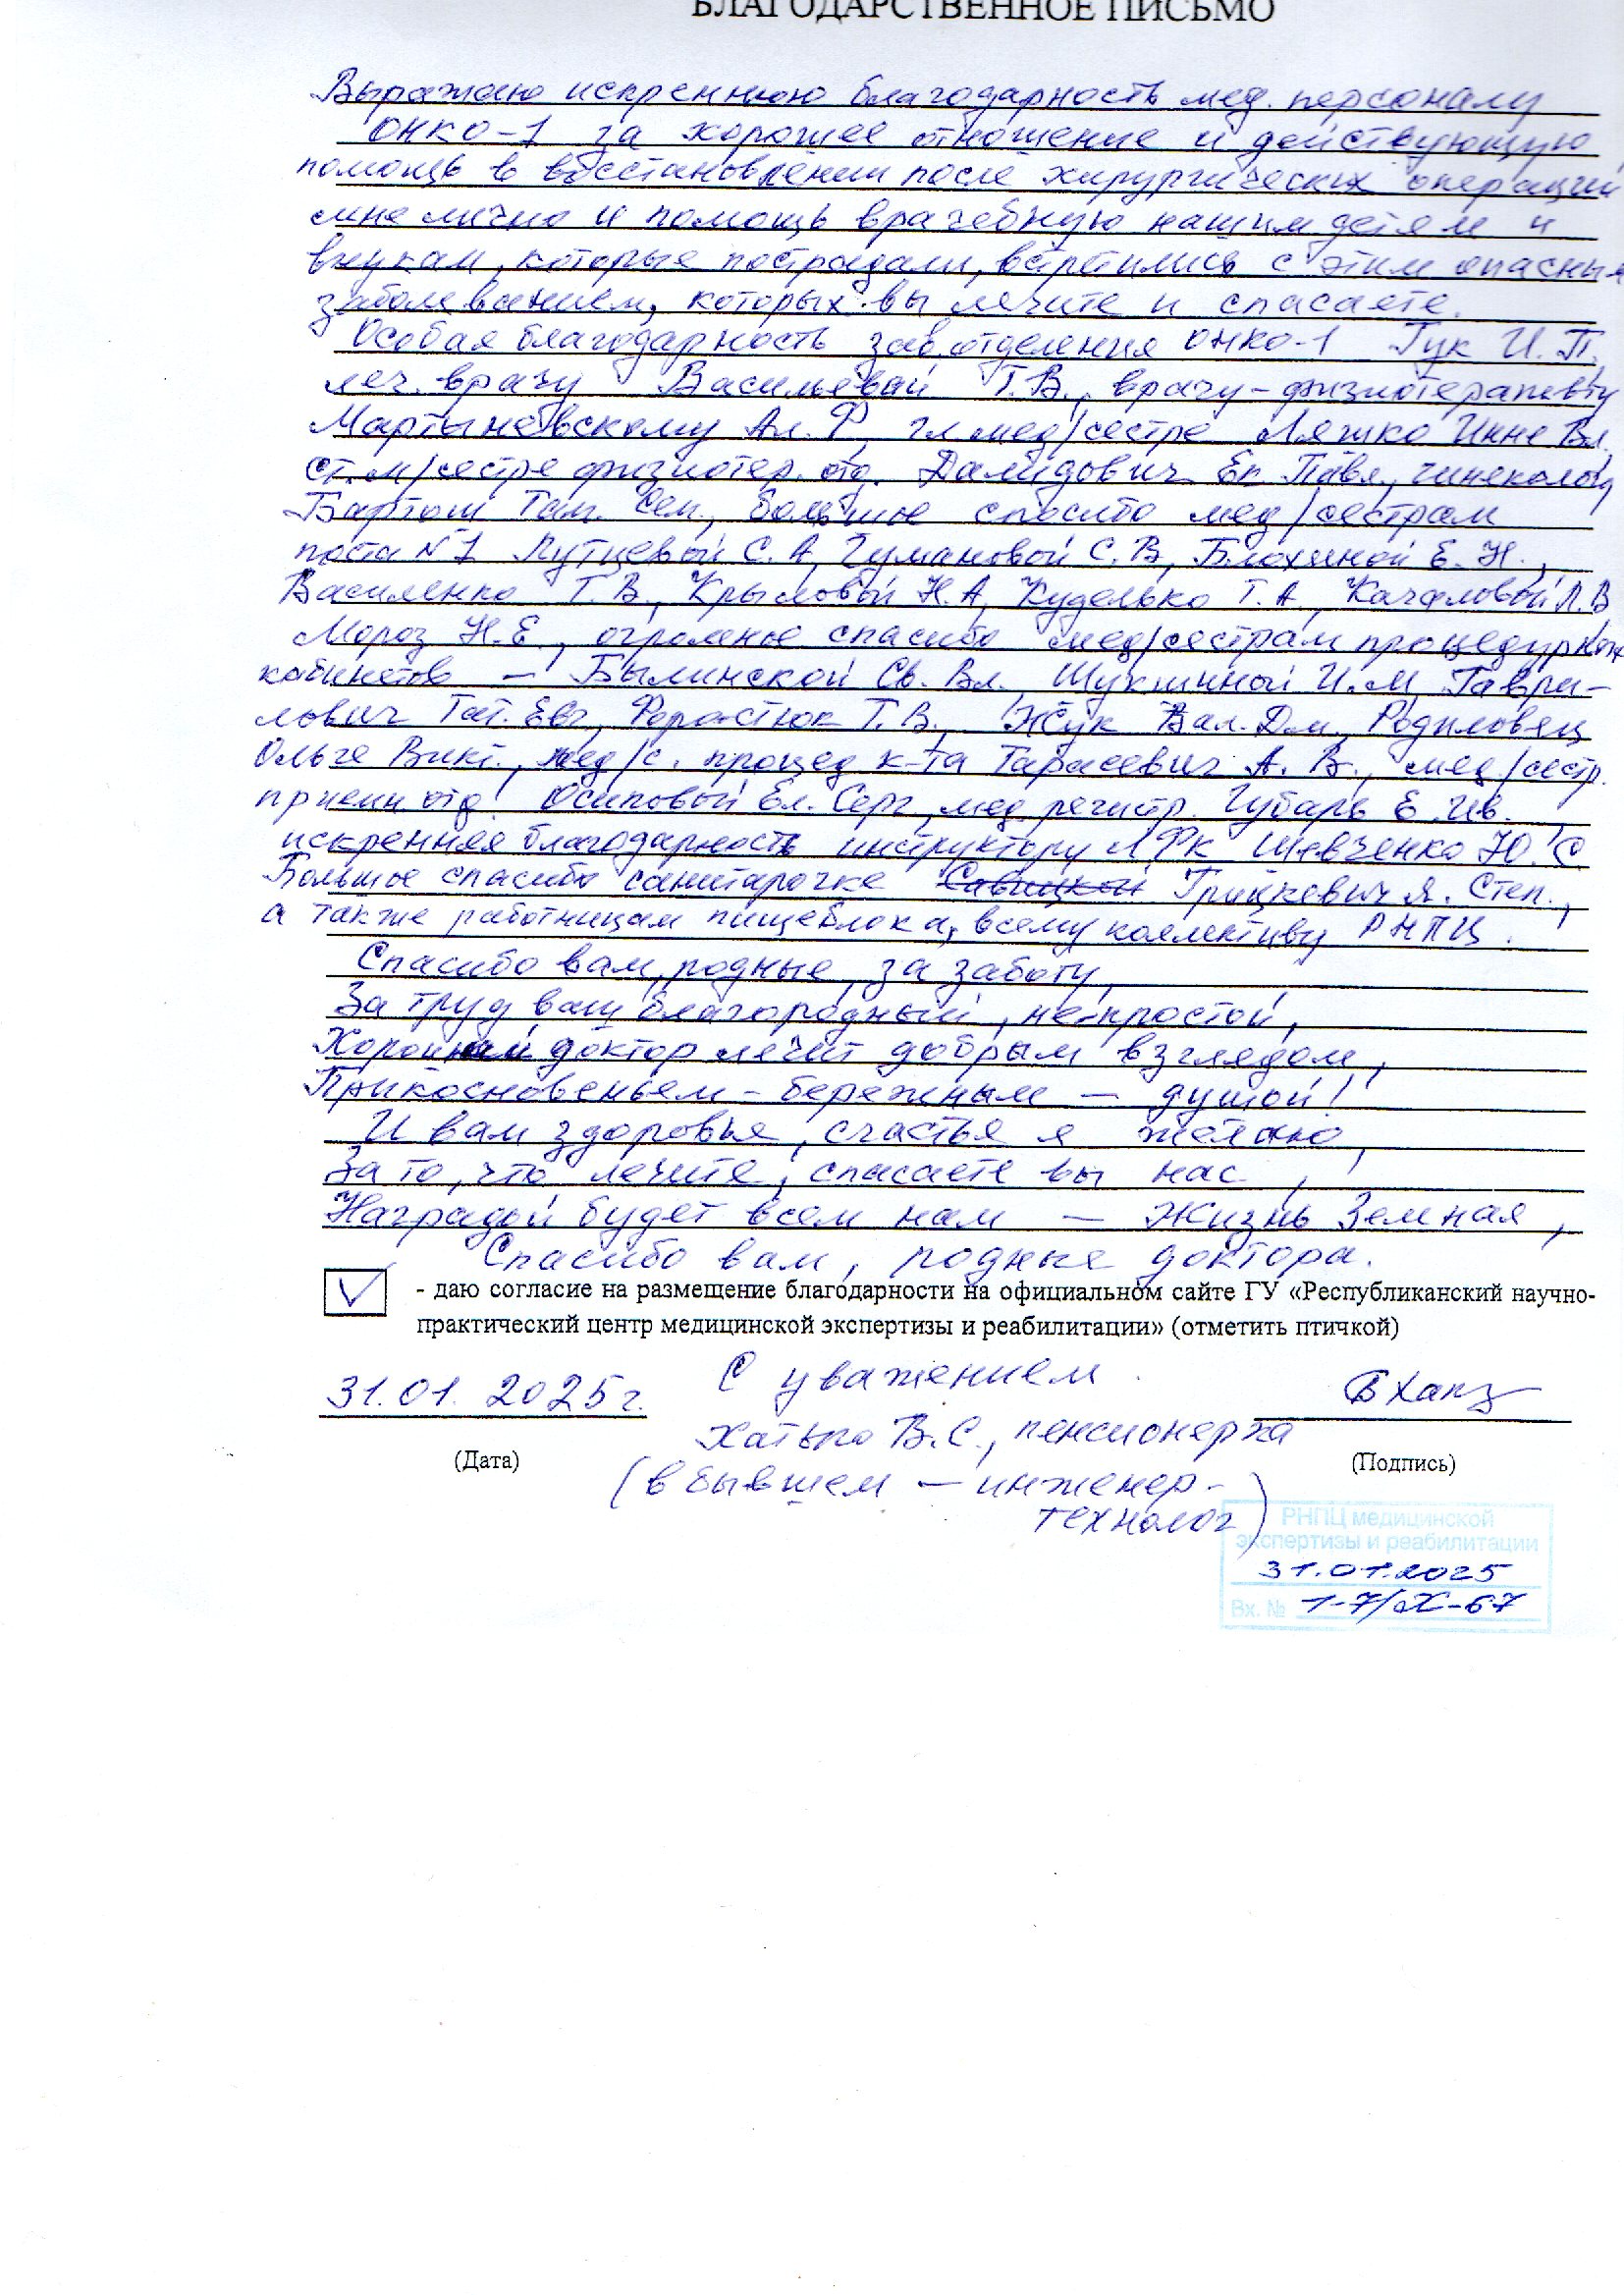 БЛАГОДАРСТВЕННОЕ ПИСЬМО
Выражаю искреннюю благодарность мед. персоналу
ОНКО-1 за хорошее отношение и действующую
помощь в восстановлении после хирургических операций
мне лично и помощь врачебную нашим детям и
внукам, которые пострадали, встретились с этим опасным
заболеванием, которых вы лечите и спасаете.
Особая благодарность зав. отделения ОНКО-1 Гук И. П.
леч. врачу Васильевой Т. В., врачу-физиотерапевту
Мартыновскому Ал. Ф, гл. мед/сестре Ляшко Инне Вл.
ст. м/сестре физиотер. отд. Далидович Ек. Павл., гинекологу
Бартош Там. Сем., большое спасибо мед/сестрам
поста N1 Путцевой С. А, Чумановой С. В, Блохиной Е. Н.,
Василенко Т. В., Крыловой Н. А, Куделько Т. А., Качаловой Л. В
Мороз Н. Е., огромное спасибо мед/сестрам процедурных
кабинетов – Былинской Св. Вл. Шукшиной И. М, Гаври-
лович Тат. Евг., Форостюк Т. В., Жук Вал. Дм., Родиловец
Ольге Викт., мед/с. процед к-та Тарасевич А. В., мед/сестр.
приемн отд. Осиповой Ел. Серг, мед. регистр. Губарь Е. Ив.
искренняя благодарность инструктору ЛФК Шевченко Ю. С
Большое спасибо санитарочке Савицкой Грицкевич Я. Степ.,
а также работницам пищеблока, всему коллективу РНПЦ.
Спасибо вам, родные, за заботу,
За труд ваш благородный, непростой,
Хороший доктор лечит добрым взглядом,
Прикосновеньем – бережным – душой!
И вам здоровья, счастья я желаю,
За то, что лечите, спасаете вы нас,
Наградой будет всем нам – Жизнь Земная,
Спасибо вам, родные доктора.
- даю согласие на размещение благодарности на официальном сайте ГУ «Республиканский научно-
практический центр медицинской экспертизы и реабилитации» (отметить птичкой)
31.01. 2025г. С уважением
Хатько В. С., пенсионерка
(Дата) (Подпись)
(в бывшем – инженер-
технолог)
РНПЦ медицинской
экспертизы и реабилитации
31.01.2025
Вх. № 1-7/Х-67